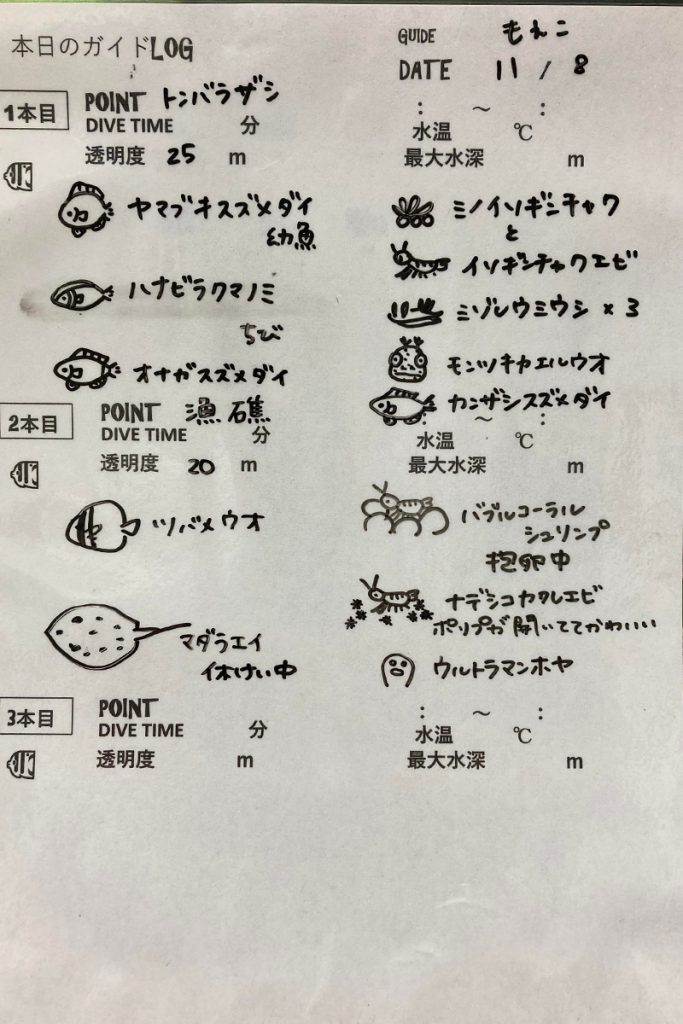 本日のガイドLOG
GUIDE もえこ
DATE 11 / 8
1本目 POINT トンバラザシ : ～ :
DIVE TIME 分 水温 ℃
透明度 25 m 最大水深 m
ヤマブキスズメダイ
幼魚
ハナビラクマノミ
ちび
オナガスズメダイ
ミノイソギンチャク
と
イソギンチャクエビ
ミゾレウミウシ × 3
モンツキカエルウオ
カンザシスズメダイ
2本目 POINT 漁礁 : ～ :
DIVE TIME 分 水温 ℃
透明度 20 m 最大水深 m
ツバメウオ
マダラエイ
休けい中
バブルコーラル
シュリンプ
抱卵中
ナデシコカクレエビ
ポリプが開いててかわいい
ウルトラマンホヤ
3本目 POINT : ～ :
DIVE TIME 分 水温 ℃
透明度 m 最大水深 m